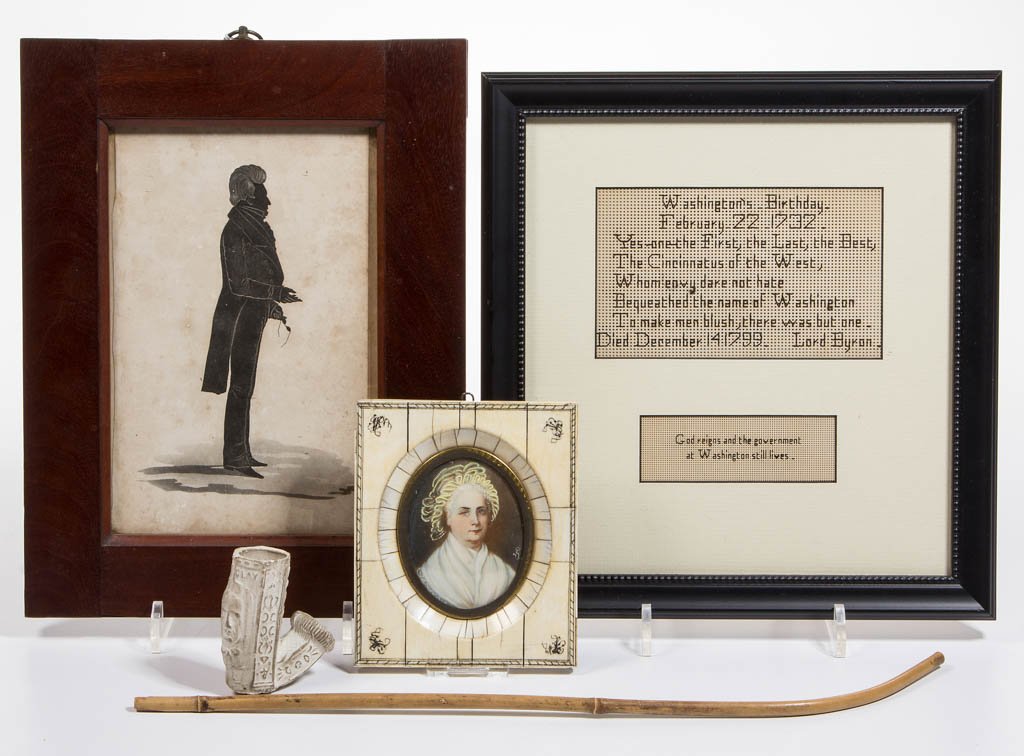 Washington's Birthday_
February 22 1732_
Yes-one-the First, the Last, the Best,
The Cincinnatus of the West,
Whom envy dare not hate
Bequeathed the name of Washington
To make men blush, there was but one_
Died December 14 1799. Lord Byron_
God reigns and the government
at Washington still lives_
CLAY